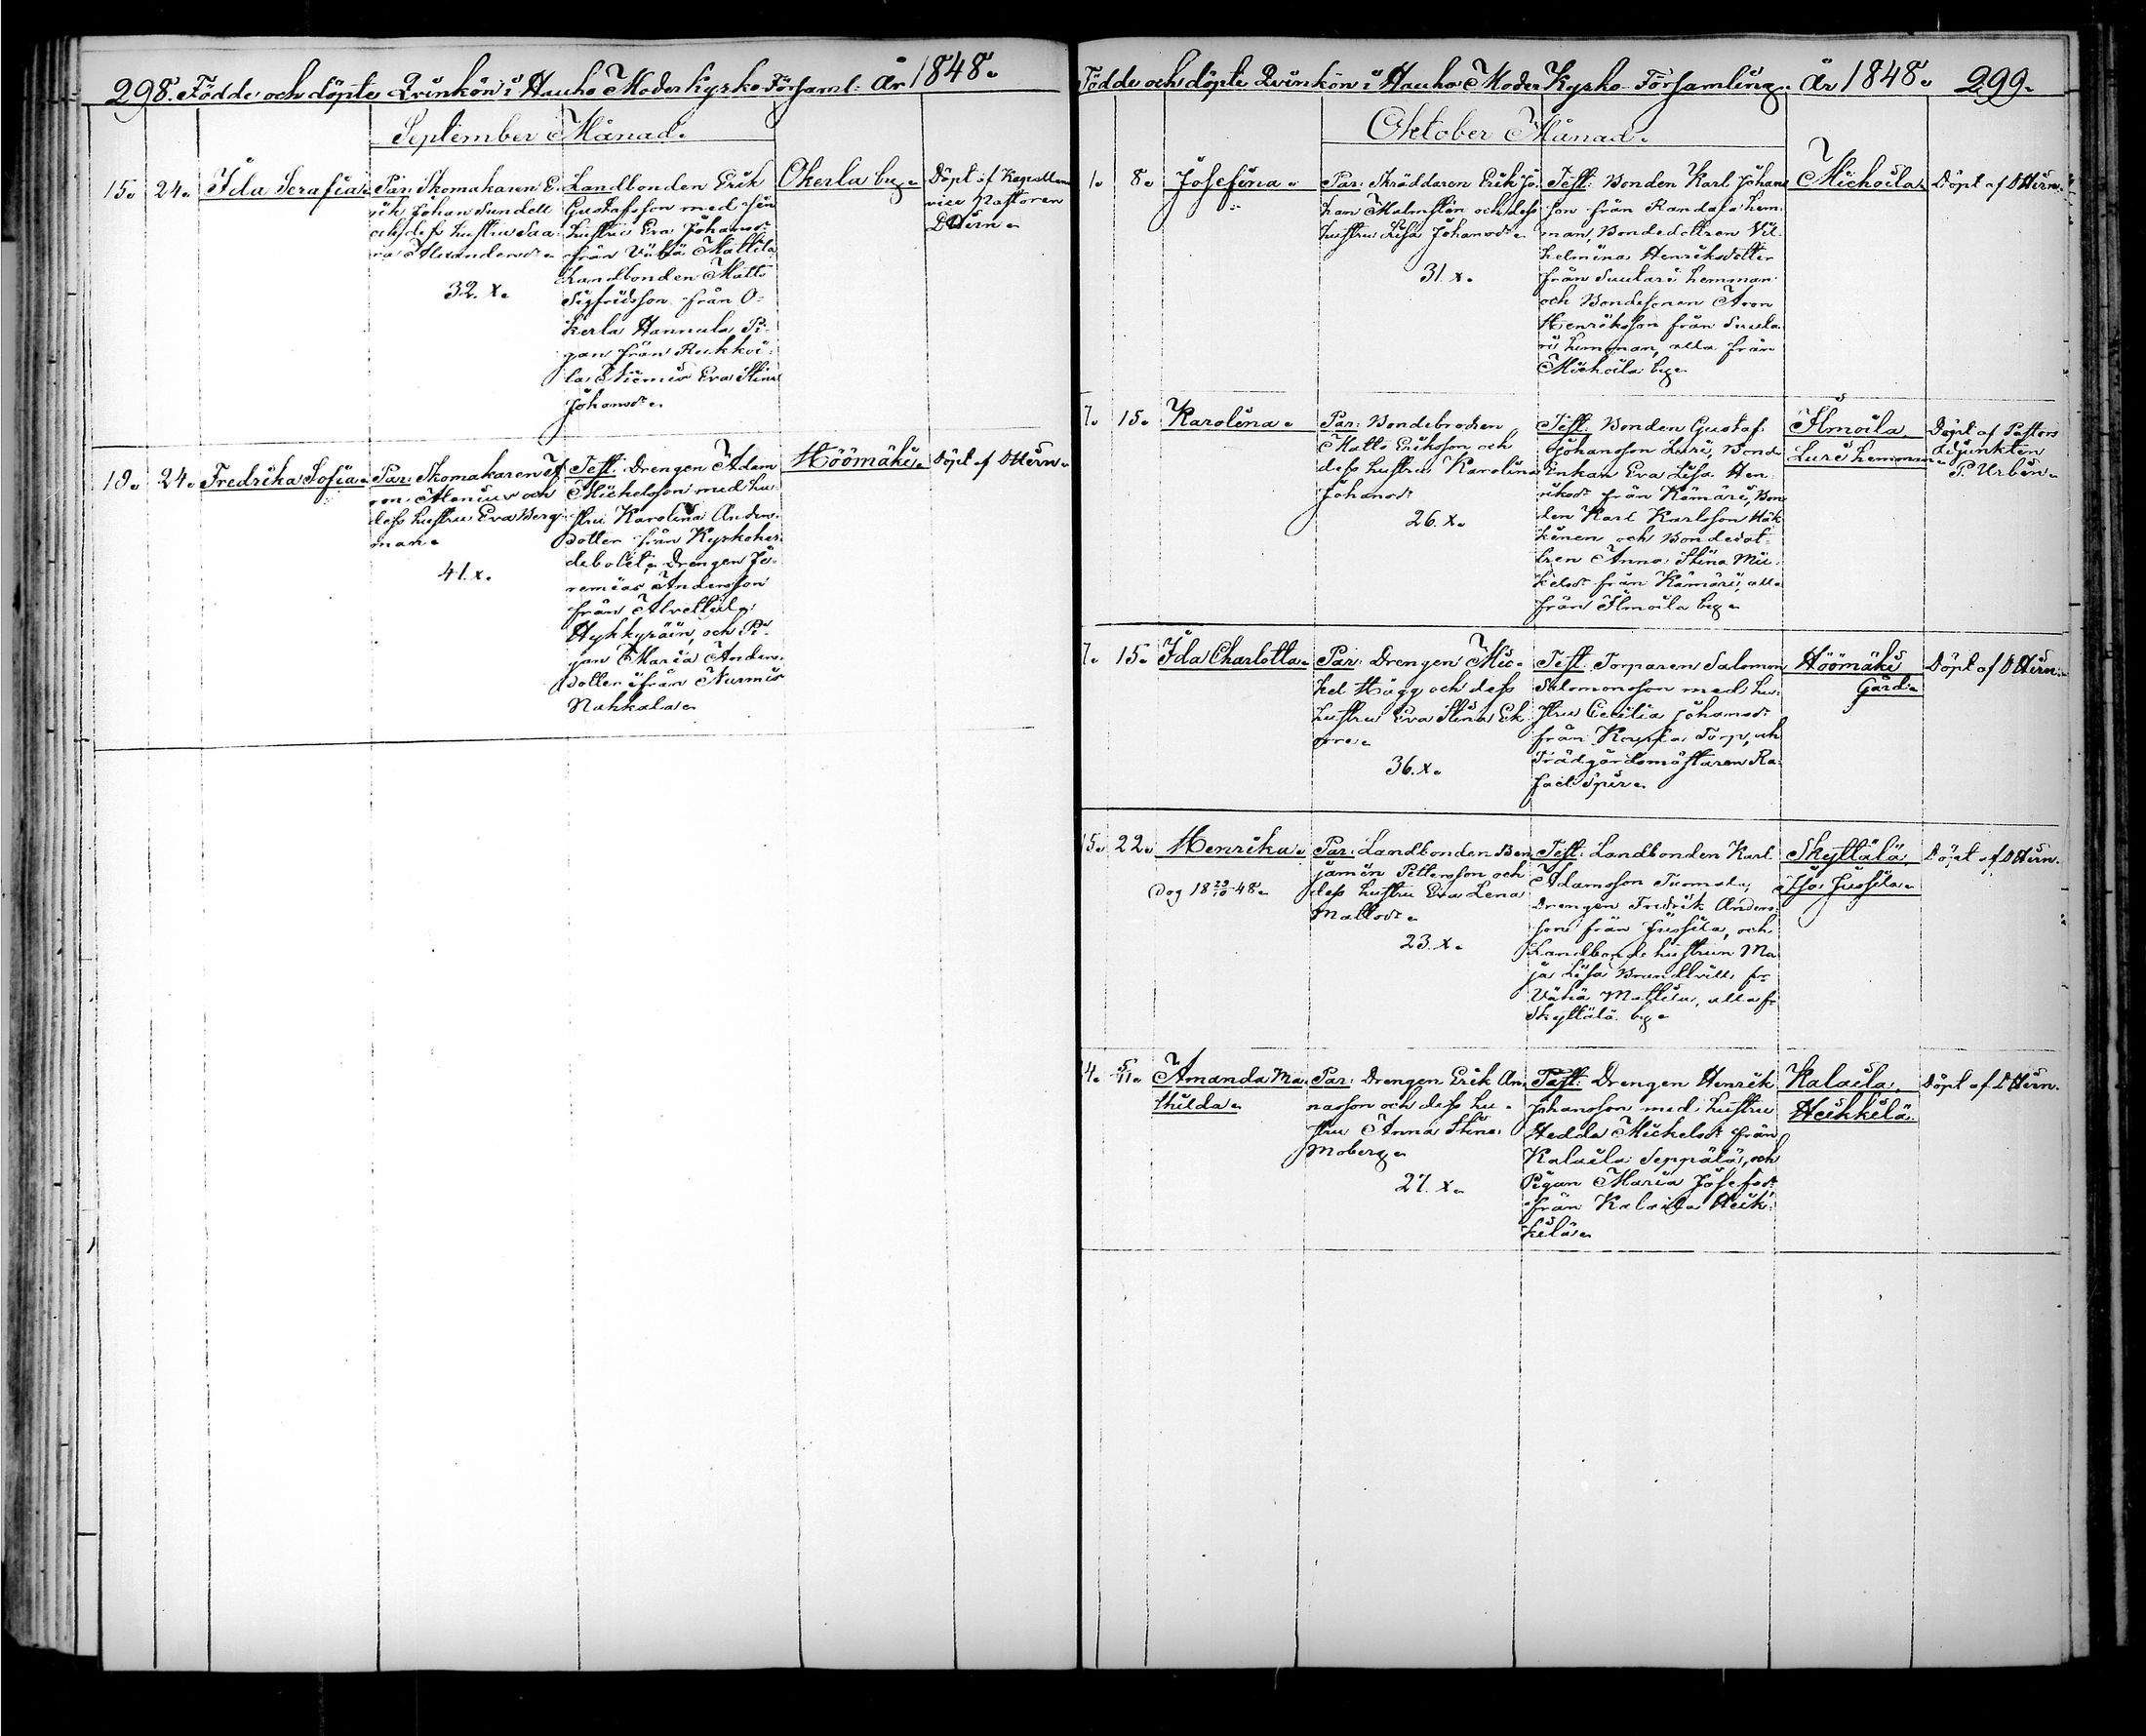 298. Födde och döpte Qvinkön i Hauho Moderkyrko-Församl: År 1848.
September Månad.
15. 24. Ida Serafia.
Par: Skomakaren E-
rik Johan Sundell
och dess hustru Saa-
ra Alexandersdr.
32. x.
Landbonden Erik
Gustafsson med sin
hustru Eva Johansdr
från Vähä Mattila
Landbonden Matts
Sigfridsson från O-
kerla Hannula, Pi-
gan från Rukkoi-
la Niemis Eva Stina
Johansdr.
Okerla by.
Döpt af Kapellan
vice Pastoren
DHirn.
19. 24. Fredrika Sofia.
Par: Skomakaren
Alenius och
dess hustru Eva Berg-
man.
41. x.
Test: Drengen Adam
Michelsson med hu-
stru Karolina Anders-
dotter från Kyrkoher-
debolet, Drengen Je-
remias Andersson
från Alvettula
Hyhkyräin, och Pi-
gan Maria Anders-
dotter ifrån Nurmis
Nuhkala.
Höömäki.
Döpt af DHirn.
Födde och döpte Qvinkön i Hauho Moder Kyrko-Församling. År 1848. 299.
Oktober Månad.
1. 8. Josefina.
Par: Skräddaren Erik Jo-
han Malmstén och dess
hustru Lisa Johansdr.
31. x.
Test: Bonden Karl Johans-
son från Randala hem-
man, Bondedottren Vil-
helmina Henriksdotter
från Suutari hemman
och Bondesonen Aron
Henriksson från Suuta-
ri hemman, alla från
Miehoila by.
Miehoila.
Döpt af DHirn.
7. 15. Karolina.
Par: Bondebrodren
Matts Eriksson och
dess hustru Karolina
Johansdr
26. x.
Test: Bonden Gustaf
Johansson Luri, Bonde
Enkan Eva Lisa Hen-
riksdr från Kämäri, Bon-
den Karl Karlsson Häk-
kinen och Bondedot-
tren Anna Stina Mi-
kelsdr från Kämäri, alla
från Ilmoila by.
Ilmoila
Luri hemman.
Döpt af Pastors
adjunkten
P. Urbén.
7. 15. Ida Charlotta.
Par: Drengen Mic-
kel Hägg och dess
hustru Eva Stina Ek-
36. x.
Test: Torparen Salomon
Salomonsson med hu-
stru Cecilia Johansdr
från Torp, och
Trädgårdsmästaren Ra-
fael Spir.
Höömäki
Gård.
Döpt af DHirn.
15. 22. Henrika.
Dog 18 29/10 48.
Par: Landbonden Ben-
jamin Pettersson och
dess hustru Eva Lena
Mattsdr.
23. x.
Test: Landbonden Karl
Adamsson Tuomola,
Drengen Fredrik Anders-
son från Jussila, och
Landbonde hustrun Ma-
ja Lisa Brandtvill fr
Vähä Mattila, alla fr
Skyttälä by.
Skyttälä,
Iso Jussila.
Döpt af DHirn.
4. 5/11. Amanda Ma-
thilda.
Par: Drengen Erik An-
nasson och dess hu-
stru Anna Stina
Moberg.
27. x.
Test: Drengen Henrik
Johansson med hustru
Hedda Michelsdr från
Kalaila Seppälä, och
Pigan Maria Josefsdr
från Kalaila Heik-
kilä.
Kalaila,
Heikkilä.
Döpt af DHirn.